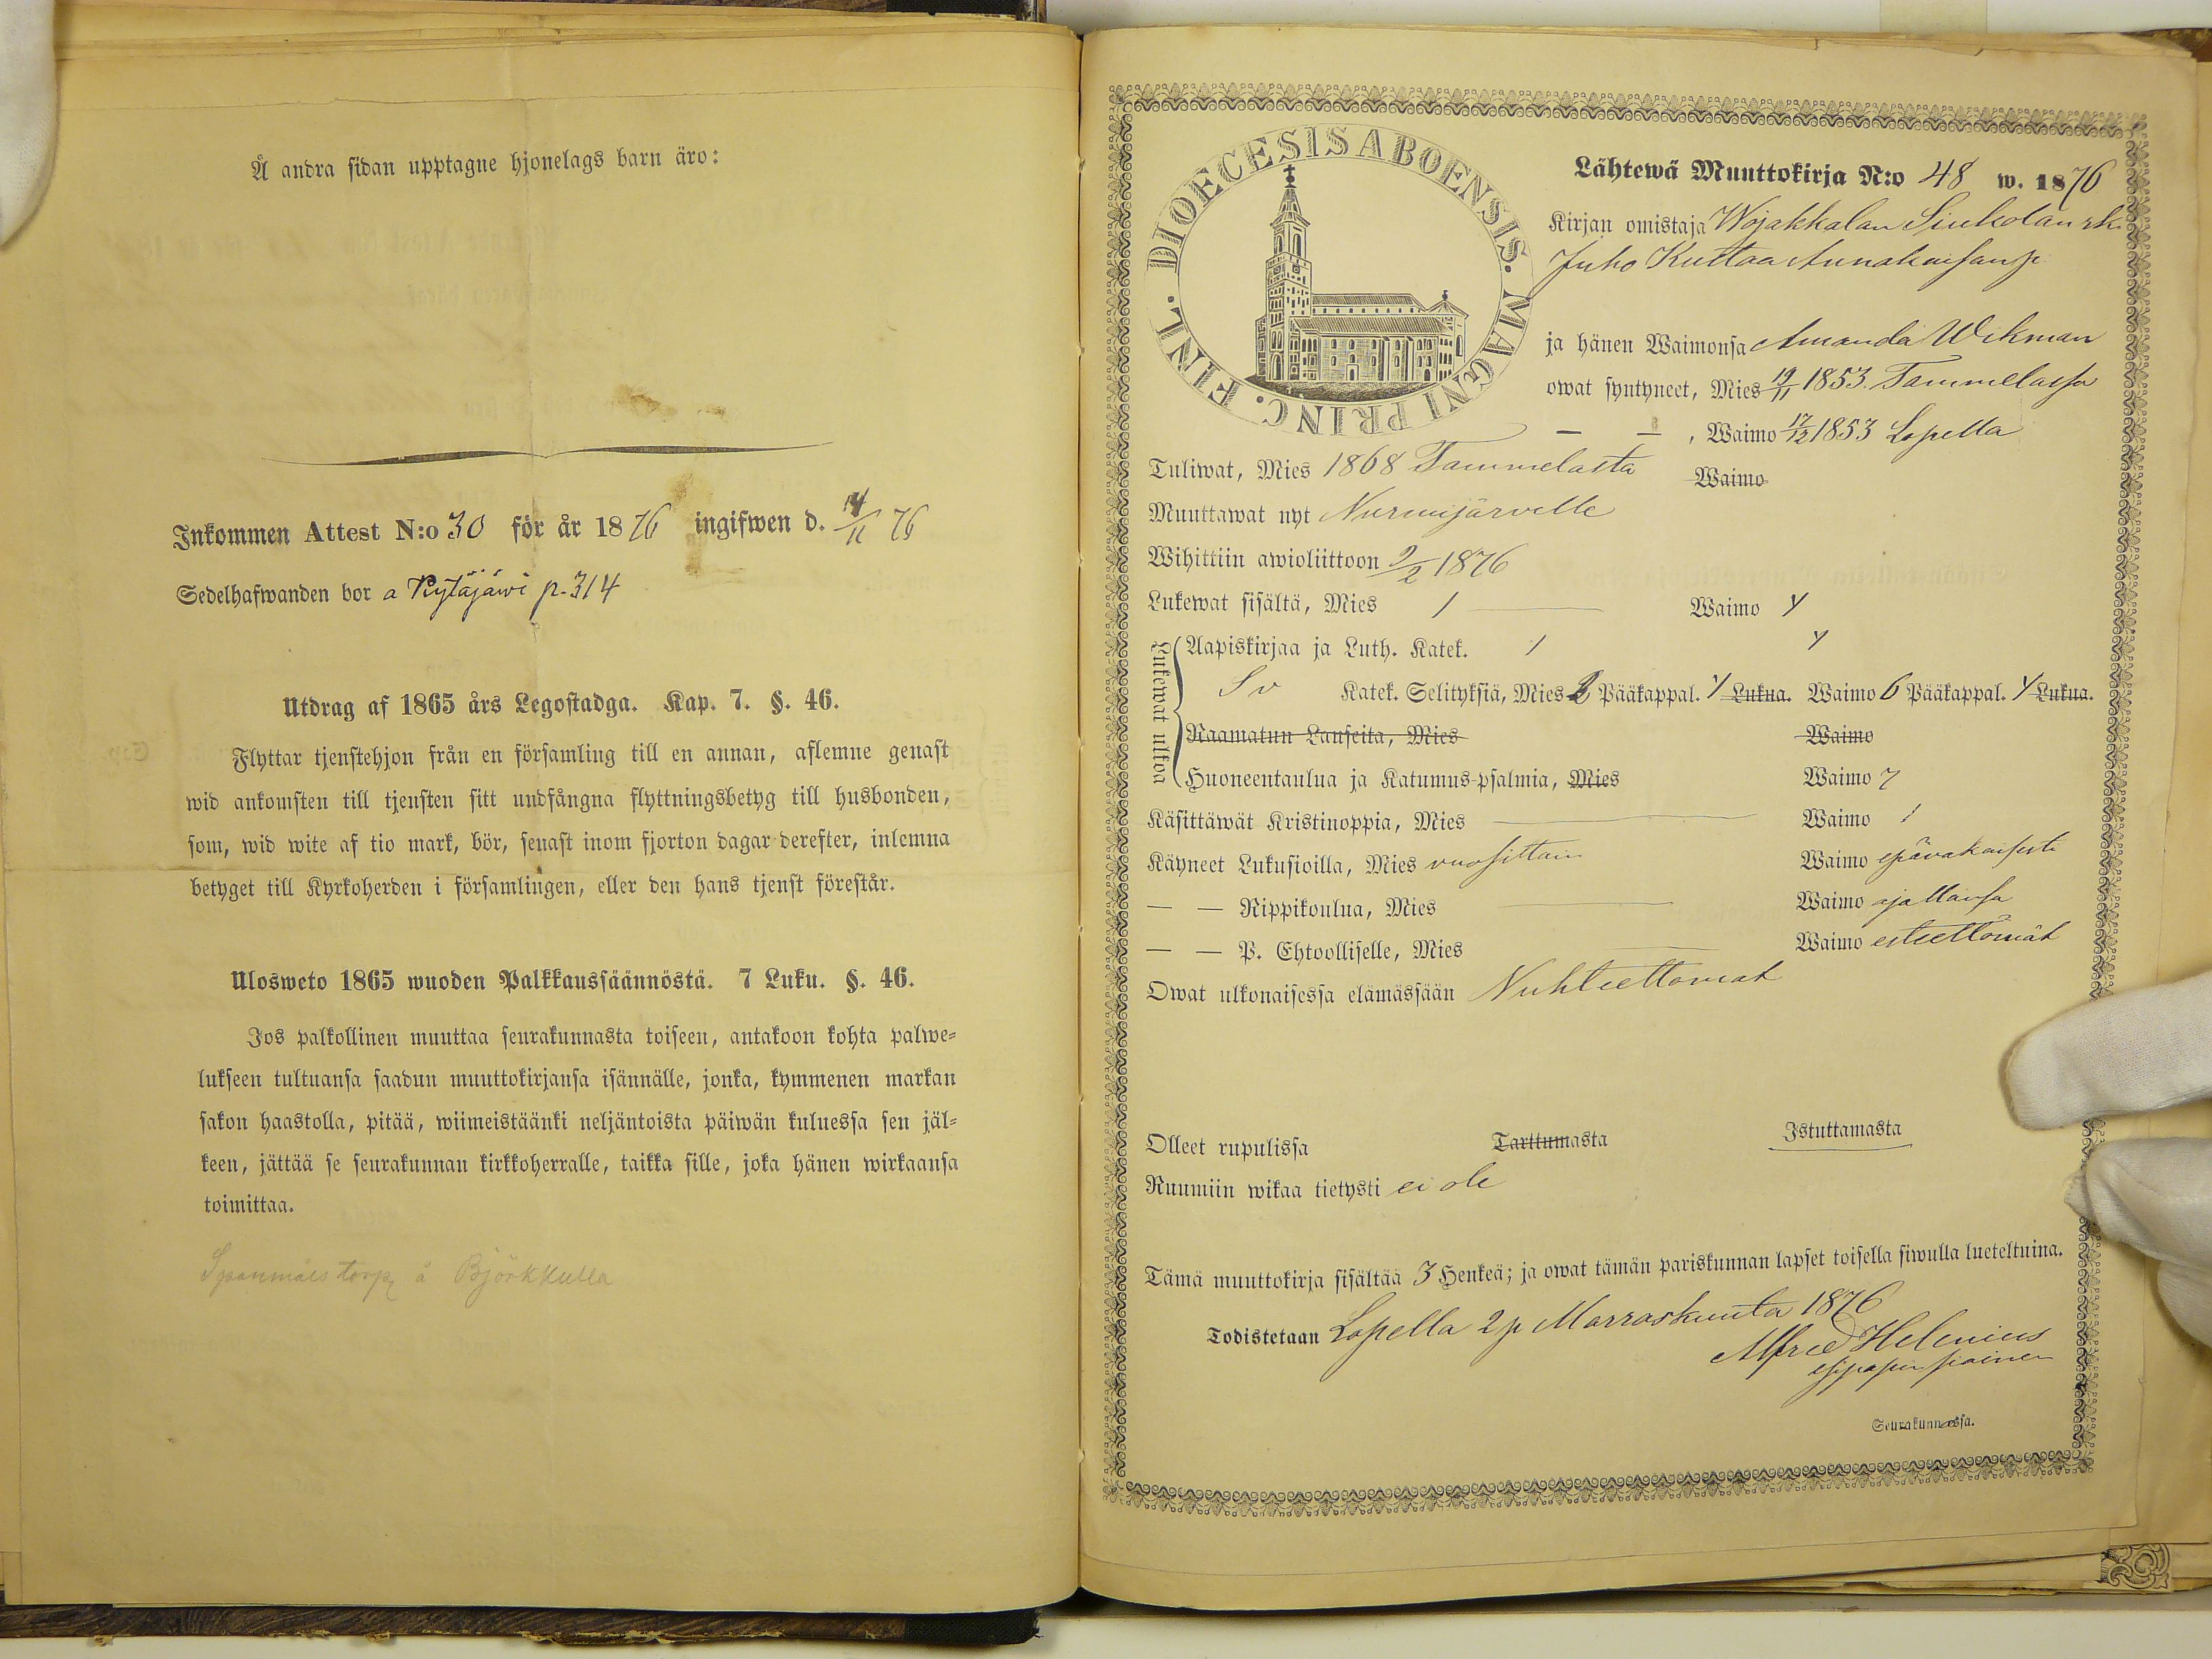 Å andra sidan upptagne hjonelags barn äro:
Inkommen Attest N:o 30 för år 1876 ingifwen d. 14/11 76
Sedelhafwanden bor a Kytäjäwi p. 314
Utdrag af 1865 års Legostadga. Kap. 7. §. 46.
Flyttar tjenstehjon från en församling till en annan, aflemne genast
wid ankomsten till tjensten sitt undfångna flyttningsbetyg till husbonden,
som, wid wite af tio mark, bör, senast inom fjorton dagar derefter, inlemna
betyget till Kyrkoherden i församlingen, eller den hans tjenst förestår.
Ulosweto 1865 wuoden Palkkaussäännöstä. 7 Luku. §. 46.
Jos palkollinen muuttaa seurakunnasta toiseen, antakoon kohta palwe-
lukseen tultuansa saadun muuttokirjansa isännälle, jonka, kymmenen markan
sakon haastolla, pitää, wiimeistäänki neljäntoista päiwän kuluessa sen jäl-
keen, jättää se seurakunnan kirkkoherralle, taikka sille, joka hänen wirkaansa
toimittaa.
torp å Björkkulla
DIOECESIS ABOENSIS. MAGNI PRINC. FINL.
Lähtewä Muuttokirja N:o 48 w. 1876
Kirjan omistaja Wojakkalan rk.
Juho Kustaa
ja hänen Waimonsa Amanda Wikman
owat syntyneet, Mies 19/11 1853 Tammelassa
— — , Waimo 17/12 1853 Lopella
Tuliwat, Mies 1868 Tammelasta Waimo
Muuttawat nyt Nurmijärvelle
Wihittiin awioliittoon 2/2 1876
Lukewat sisältä, Mies 1 Waimo Y
Lukewat ulkoa
Aapiskirjaa ja Luth. Katek. 1 Y
Sv Katek. Selityksiä, Mies Pääkappal. Y Lukua. Waimo 6 Pääkappal. Y Lukua.
Raamatun Lauseita, Mies Waimo
Huoneentaulua ja Katumus-psalmia, Mies Waimo 7
Käsittäwät Kristinoppia, Mies Waimo 1
Käyneet Lukusioilla, Mies vuosittain Waimo epävakaisesti
— — Rippikoulua, Mies Waimo ajallansa
— — P. Ehtoolliselle, Mies Waimo esteettömät
Owat ulkonaisessa elämässään Nuhteettomat
Olleet rupulissa Tarttumasta Istuttamasta
Ruumiin wikaa tietysti ei ole
Tämä muuttokirja sisältää 3 Henkeä; ja owat tämän pariskunnan lapset toisella siwulla lueteltuina.
Todistetaan Lopella 2 p Marraskuuta 1876
Alfred Helenius
Seurakunnassa.